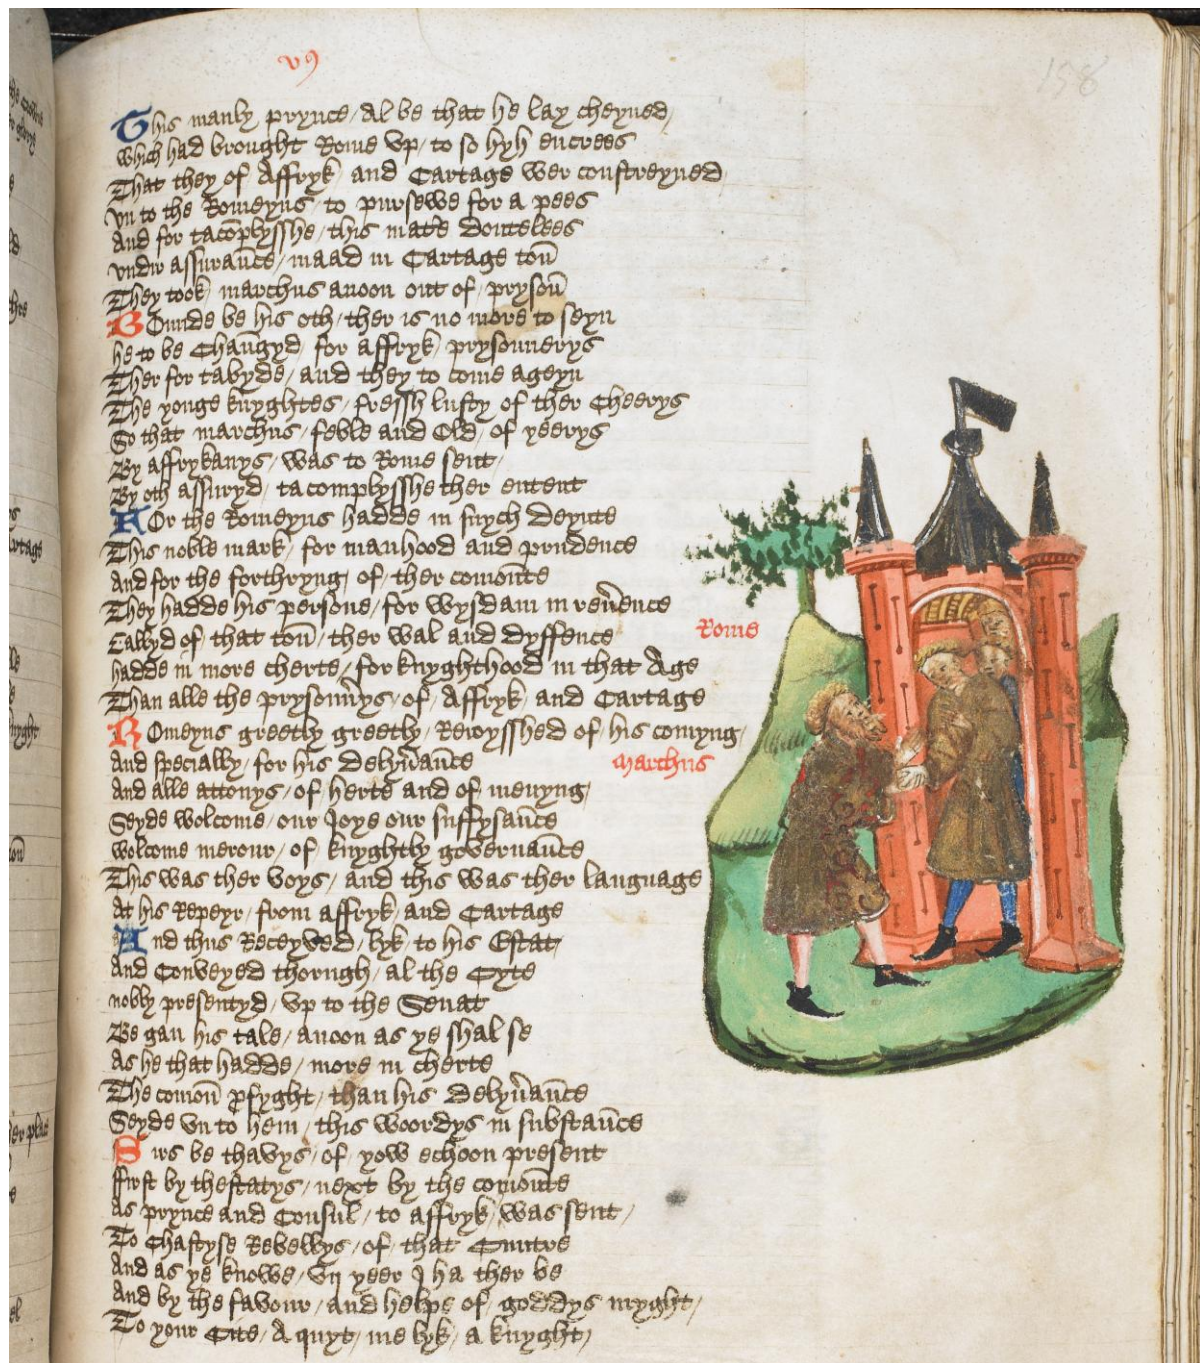 v9
158
This manly prynce / Al be that he lay cheyned /
which had brought Rome vp / to so hyh encrees
That they of Affryk / and Cartage wer constreyned
vn to the Romeyns / to pursewe for a pees
And for tacōplysshe / this mate doutelees
vndir assuraūce / maad in Cartage toū
They took marchus anoon out of / prysoū
Bounde be his oth / ther is no more to seyn
he to be Chaūgyd / for affryk / prysounerys
Ther for tabyde / and they to come ageyn
The yonge knyghtes / fressh lusty of ther Cheerys
So that marchus / feble and Old / of yeerys
By affrykanys / was to Rome sent /
By oth assuryd / tacomplysshe ther entent
For the Romeyns hadde in swych deynte
This noble mark / for manhood and prudence
And for the forthryng / of / ther comoūte
They hadde his persone / for wysdam in reu̅ence
Callyd of / that toū / ther wal and dyffence
hadde in more cherte / for knyghthood in that Age
Than alle the prysoūnys / of / Affryk / and Cartage
Rome
Romeyns greetly greetly / Reioysshed of / his comyng /
And specially / for his delyu̅aūce
marchus
And alle attonys / of / herte and of / menyng /
Seyde wolcome / our Joye our suffysaūce
wolcome merour / of / knyghtly gouernaūce
This was ther voys / and this was ther language
At his Repeyr / from affryk / and Cartage
And thus Receyved / lyk / to his Estat /
And Conveyed thorugh / al the Cyte
nobly presentyd / vp to the Senat
Be gan his tale / anoon as ye shal se
As he that hadde / more in cherte
The comoū ꝓfyght / than his delyu̅aūce
Seyde vn to hem / this woordys in substaūce
Sirs be thavys / of / yow echoon present
ffirst by thestatys / next by the comoūte
As prynce and Consul / to affryk / was sent /
To Chastyse Rebellys / of / that Cuntre
And as ye knowe / vij yeer I ha ther be
And by the favour / and helpe of / goddys myght /
To your Cite / A quyt / me lyk / a knyght /